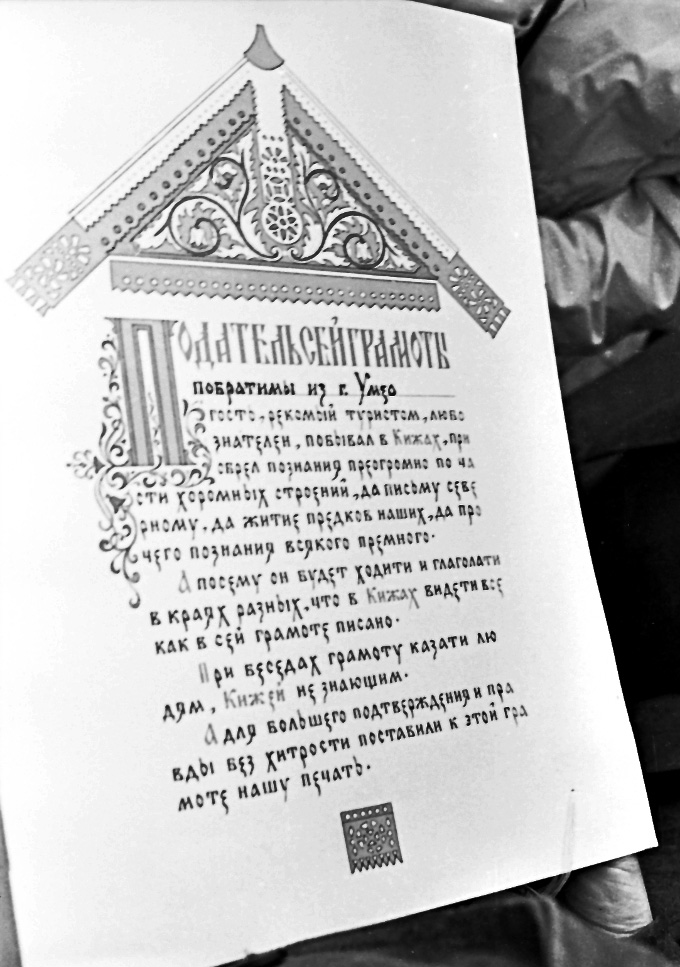 ПОДАТЕЛЬ СЕЙ ГРАМОТЫ
побратимы из г. Умео
гость, рекомый туристом, любо
знателен, побывал в Кижах, при
обрел познания преогромно по ча
сти хоромных строений, да письму севе
рному, да житие предков наших, да про
чего познания всякого премного.
А посему он будет ходити и глаголати
в краях разных, что в Кижах видети все
как в сей грамоте писано.
При беседах грамоту казати лю
дям, Кижей не знающим.
А для большего подтверждения и пра
вды без хитрости поставили к этой гра
моте нашу печать.